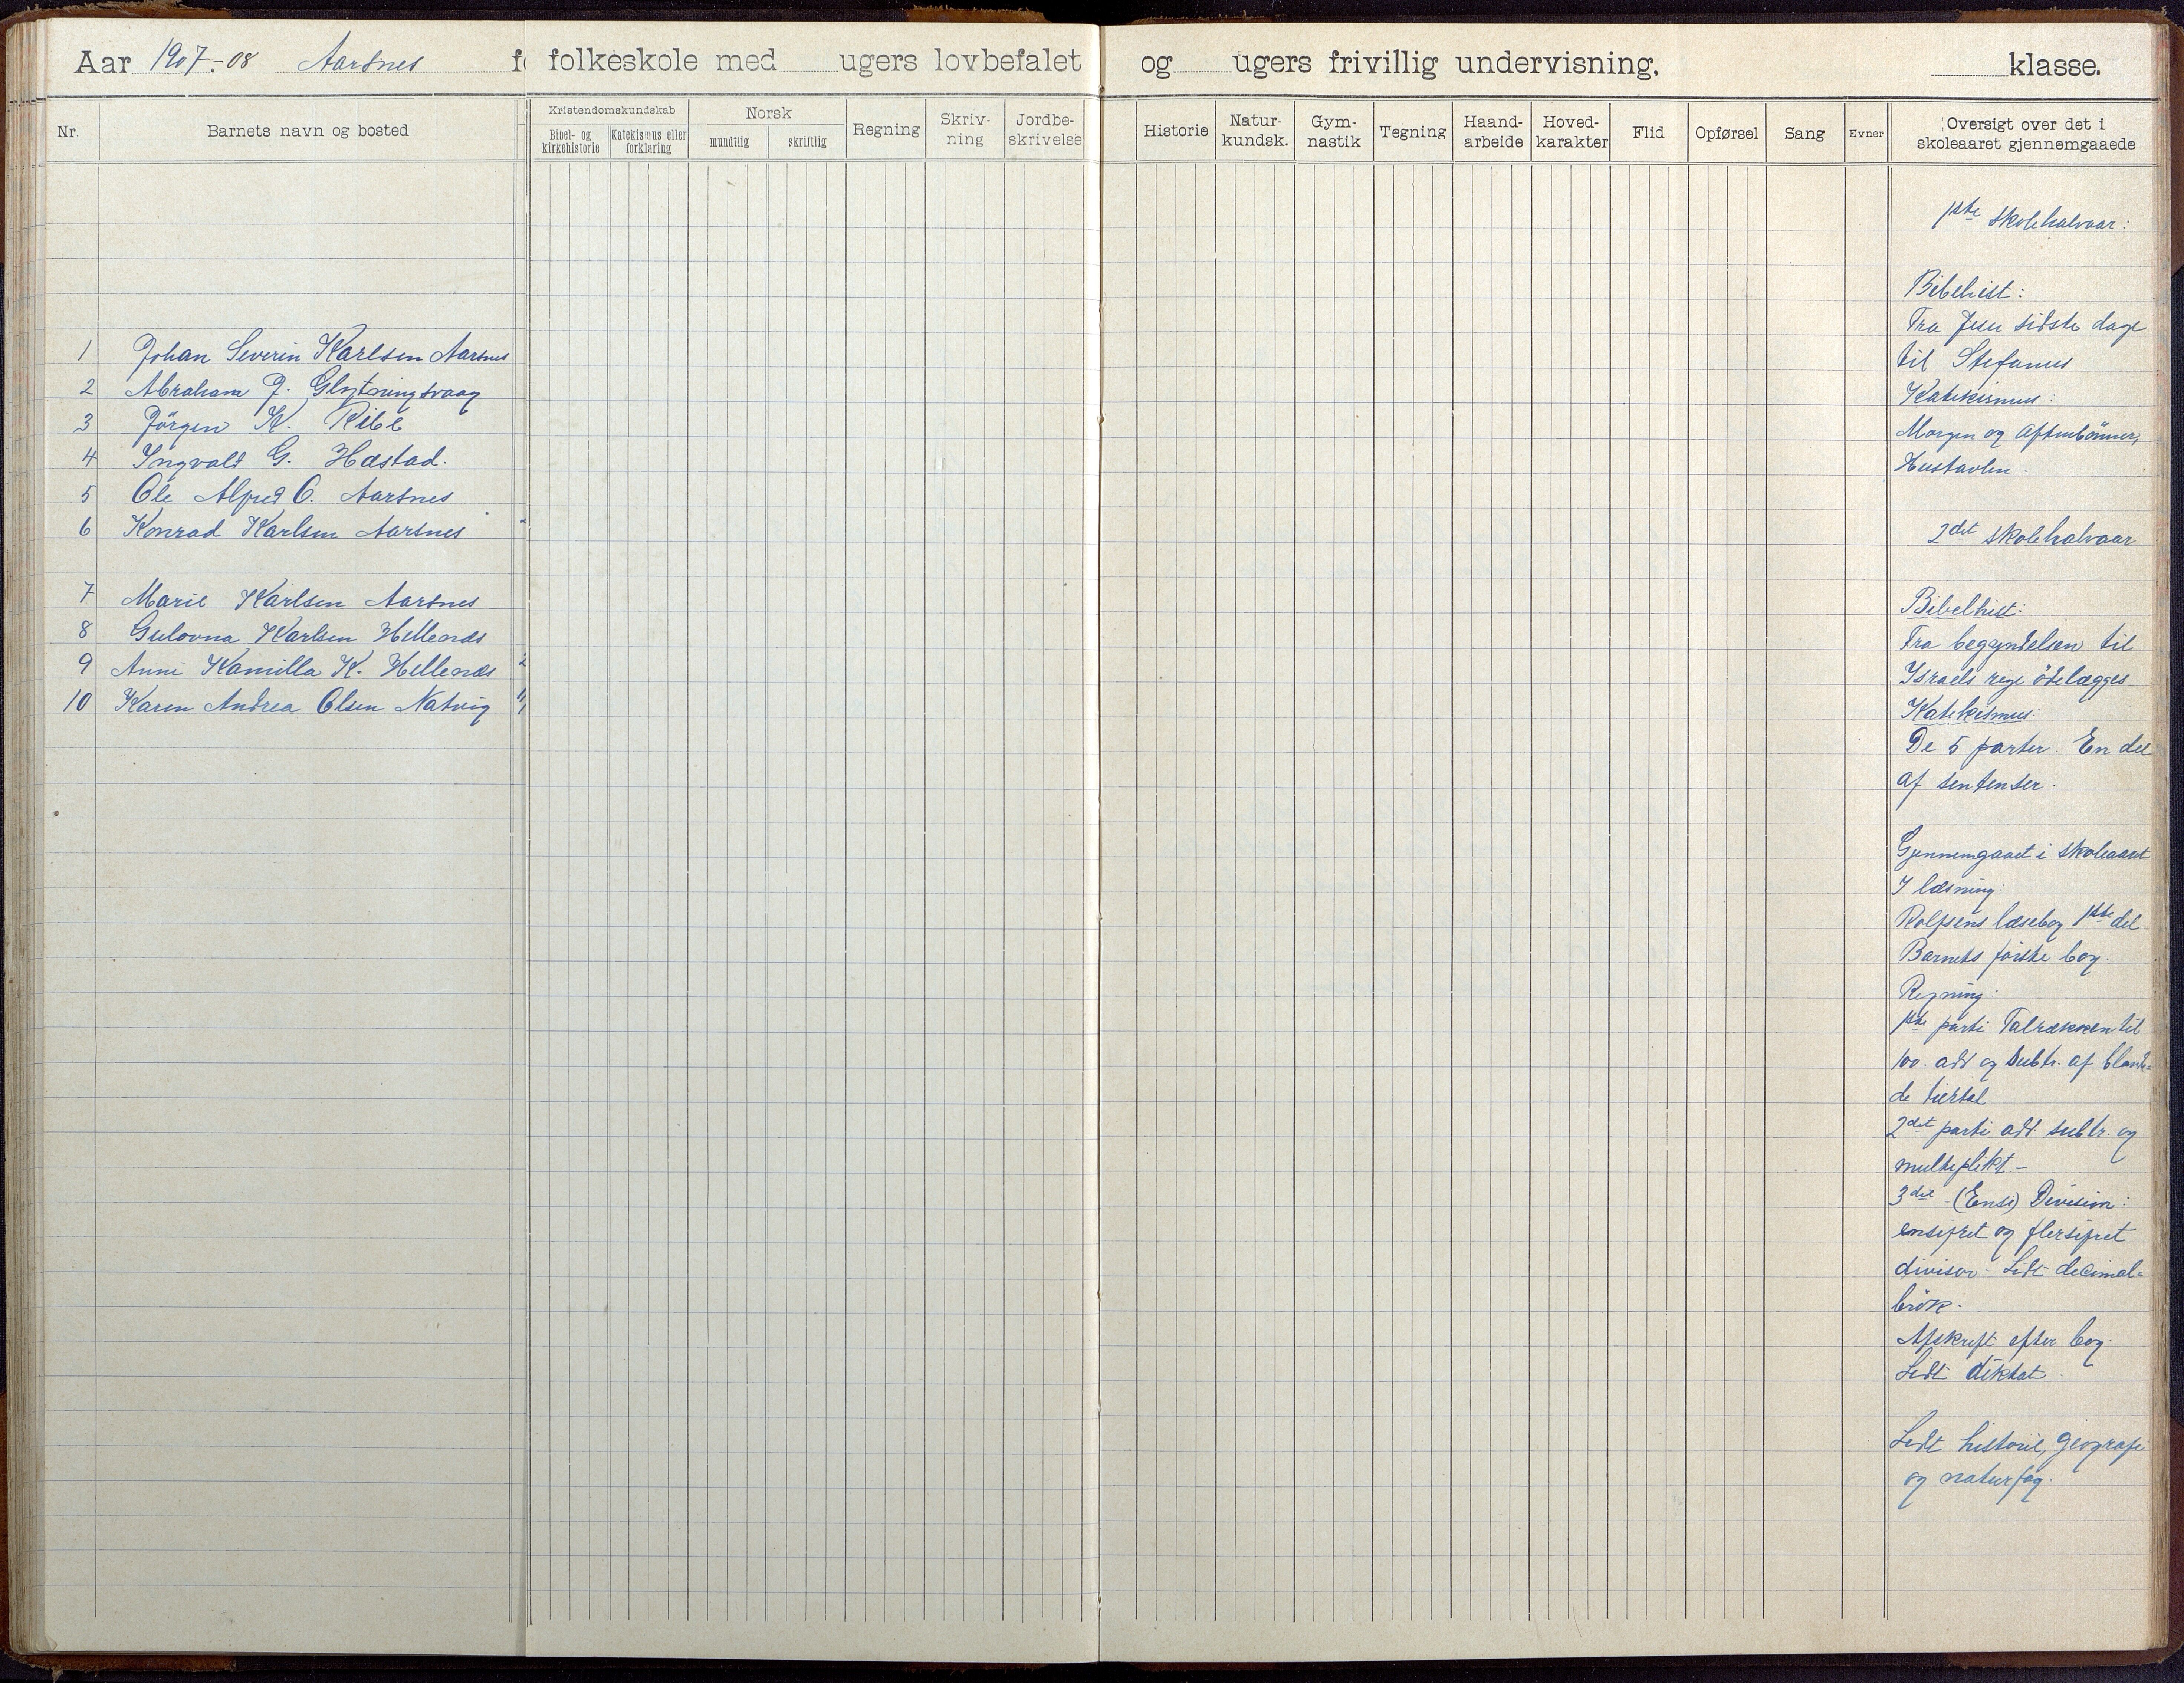 Aar 1907.-08 Aarsnes folkeskole med ugers lovbefalet og ugers frivillig undervisning. klasse.
Nr.
Barnets navn og bosted
Kristendomskundskab
Bibel- og kirkehistorie
Katekismus eller forklaring
Norsk
mundtlig
skriftlig
Regning
Skriv-
ning
Jordbe-
skrivelse
Historie
Natur-
kundsk.
Gym-
nastik
Tegning
Haand-
arbeide
Hoved-
karakter
Flid
Opførsel
Sang
Evner
Oversigt over det i
skoleaaret gjennemgaaede
1 Johan Severin Karlsen Aarsnes
2 Abraham J. Glytningsvaag
3 Jörgen K. Ribe
4 Ingvald G. Hæstad.
5 Ole Alfred O. Aarsnes
6 Konrad Karlsen Aarsnes
7 Marie Karlsen Aarsnes
8 Gulovna Karlsen Hellenæs
9 Anne Kamilla K. Hellenæs
10 Karen Andrea Olsen Natvig
1ste skolehalvaar:
Bibelhist:
Fra Jesu sidste dage
til Stefanus
Katekismus:
Morgen og Aftenbönner,
Hustavlen.
2det skolehalvaar
Bibelhist:
Fra begyndelsen til
Israels rige ödelægges
Katekismus:
De 5 parter. En del
af sentenser.
Gjennemgaaet i skoleaaret
I læsning:
Rolfsens læsebog 1ste del
Barnets förste bog.
Regning:
1ste parti Talrækken til
100. add og Subtr. af blande-
de tiertal
2det parti add. subtr. og
multiplikt.-
3det - (Ensi) Division:
ensifret og flersifret
divisor - Lidt decimal-
brök.
Afskrift efter bog.
Lidt diktat.
Lidt historie, geografi
og naturfag.